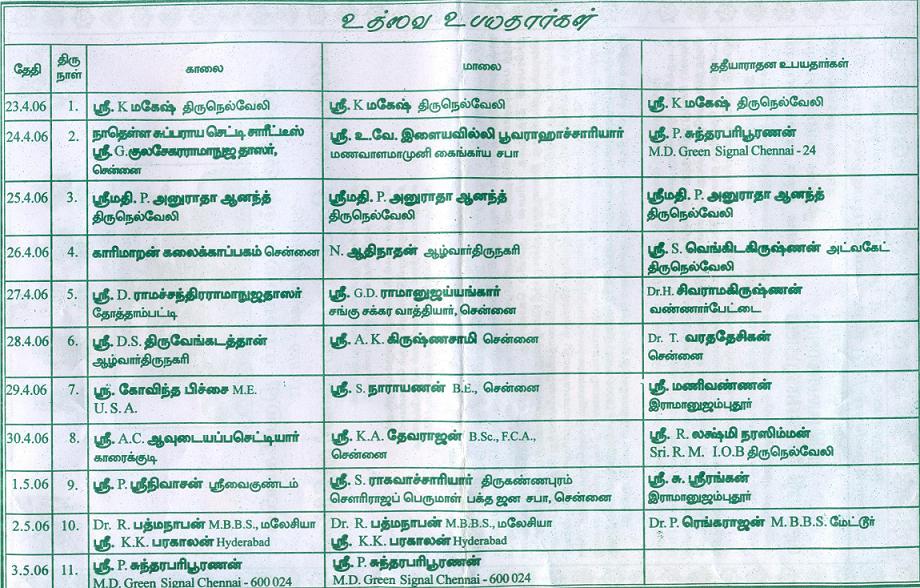 உத்ஸவ உபயதார்கள்
தேதி
திரு
நாள்
காலை
மாலை
ததீயாராதன உபயதார்கள்
23.4.06 1. ஸ்ரீ. K மகேஷ் திருநெல்வேலி ஸ்ரீ. K மகேஷ் திருநெல்வேலி ஸ்ரீ. K மகேஷ் திருநெல்வேலி
24.4.06 2. நாதெள்ள சுப்பராய செட்டி சாரீட்டீஸ்
ஸ்ரீ. G.குலசேகரராமாநுஜ தாஸர்,
சென்னை
ஸ்ரீ. உ.வே. இளையவில்லி பூவராஹாச்சாரியார்
மணவாளமாமுனி கைங்கர்ய சபா
ஸ்ரீ. P. சுந்தரபரிபூரணன்
M.D. Green Signal Chennai - 24
25.4.06 3. ஸ்ரீமதி. P. அனுராதா ஆனந்த்
திருநெல்வேலி
ஸ்ரீமதி. P. அனுராதா ஆனந்த்
திருநெல்வேலி
ஸ்ரீமதி. P. அனுராதா ஆனந்த்
திருநெல்வேலி
26.4.06 4. காரிமாறன் கலைக்காப்பகம் சென்னை N. ஆதிநாதன் ஆழ்வார்திருநகரி
ஸ்ரீ. S. வெங்கிடகிருஷ்ணன் அட்வகேட்
திருநெல்வேலி
27.4.06 5. ஸ்ரீ. D. ராமச்சந்திரராமாநுஜதாஸர்
தோத்தாம்பட்டி
ஸ்ரீ. G.D. ராமானுஜய்யங்கார்
சங்கு சக்கர வாத்தியார், சென்னை
Dr.H. சிவராமகிருஷ்ணன்
வண்ணார்பேட்டை
28.4.06 6. ஸ்ரீ. D.S. திருவேங்கடத்தான்
ஆழ்வார்திருநகரி
ஸ்ரீ. A.K. கிருஷ்ணசாமி சென்னை
Dr. T. வரததேசிகன்
சென்னை
29.4.06 7. ஸ்ரீ. கோவிந்த பிச்சை M.E.
U.S.A.
ஸ்ரீ. S. நாராயணன் B.E., சென்னை
ஸ்ரீ. மணிவண்ணன்
இராமானுஜம்புதூர்
30.4.06 8. ஸ்ரீ. A.C. ஆவுடையப்பசெட்டியார்
காரைக்குடி
ஸ்ரீ. K.A. தேவராஜன் B.Sc., F.C.A.,
சென்னை
ஸ்ரீ. R. லக்ஷ்மி நரஸிம்மன்
Sri. R. M. I.O.B திருநெல்வேலி
1.5.06 9. ஸ்ரீ. P. ஸ்ரீநிவாசன் ஸ்ரீவைகுண்டம்
ஸ்ரீ. S. ராகவாச்சாரியார் திருகண்ணபுரம்
சௌரிராஜப் பெருமாள் பக்த ஜன சபா, சென்னை
ஸ்ரீ. சு. ஸ்ரீரங்கன்
இராமானுஜம்புதூர்
2.5.06 10. Dr. R. பத்மநாபன் M.B.B.S., மலேசியா
ஸ்ரீ. K.K. பரகாலன் Hyderabad
Dr. R. பத்மநாபன் M.B.B.S., மலேசியா
ஸ்ரீ. K.K. பரகாலன் Hyderabad
Dr. P. ரெங்கராஜன் M.B.B.S. மேட்டூர்
3.5.06 11. ஸ்ரீ. P. சுந்தரபரிபூரணன்
M.D. Green Signal Chennai - 600 024
ஸ்ரீ. P. சுந்தரபரிபூரணன்
M.D. Green Signal Chennai - 600 024